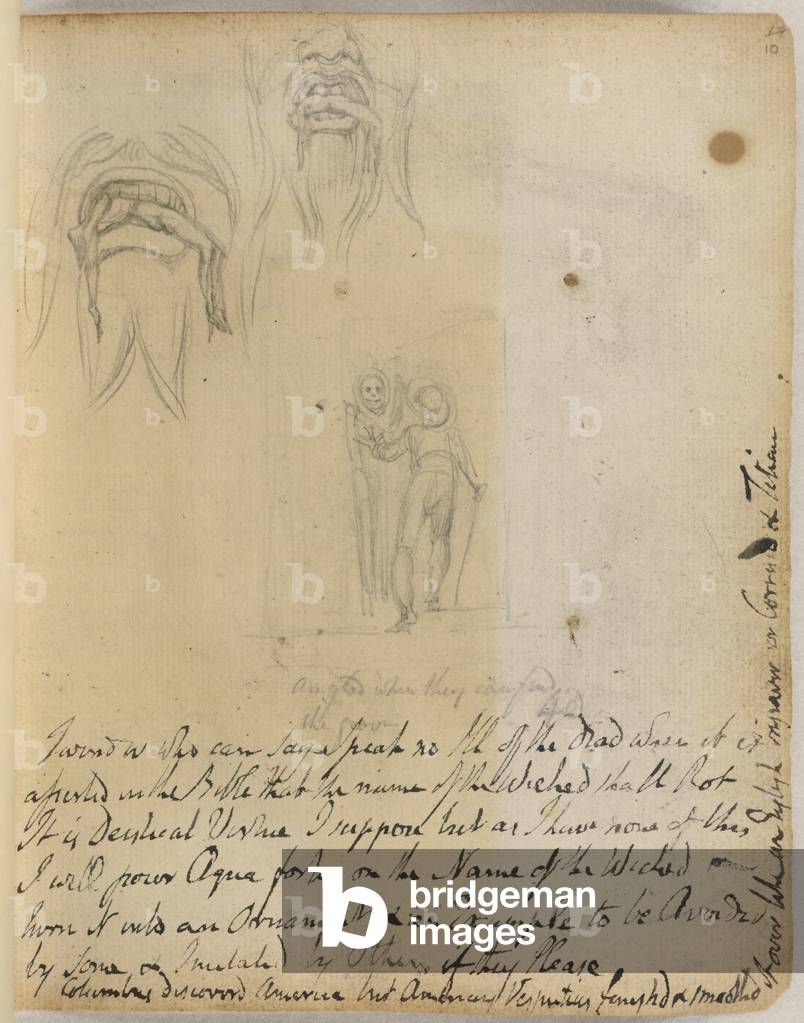 17
10
are glad when they can find
the grave
I wonder who can say Speak no Ill of the dead when it is
asserted in the Bible that the name of the Wicked shall Rot
It is Deistical Virtue I suppose but as I have none of this
I will pour Aqua fortis on the Name of the Wicked &
turn it into an Ornament & an Example to be Avoided
by Some & Imitated by Others if they Please
Columbus discoverd America but Americus Vesputius finishd & smoothd
it over like an English Engraver or Corregio or Titian
bridgeman
images